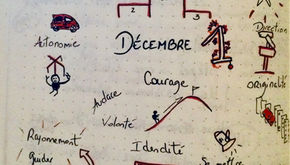 2
3
Direction
Autonomie
DÉCEMBRE
1
Courage
Originalité
Audace
Volonté
Rayonnement
Guider
Identité
Se mettre